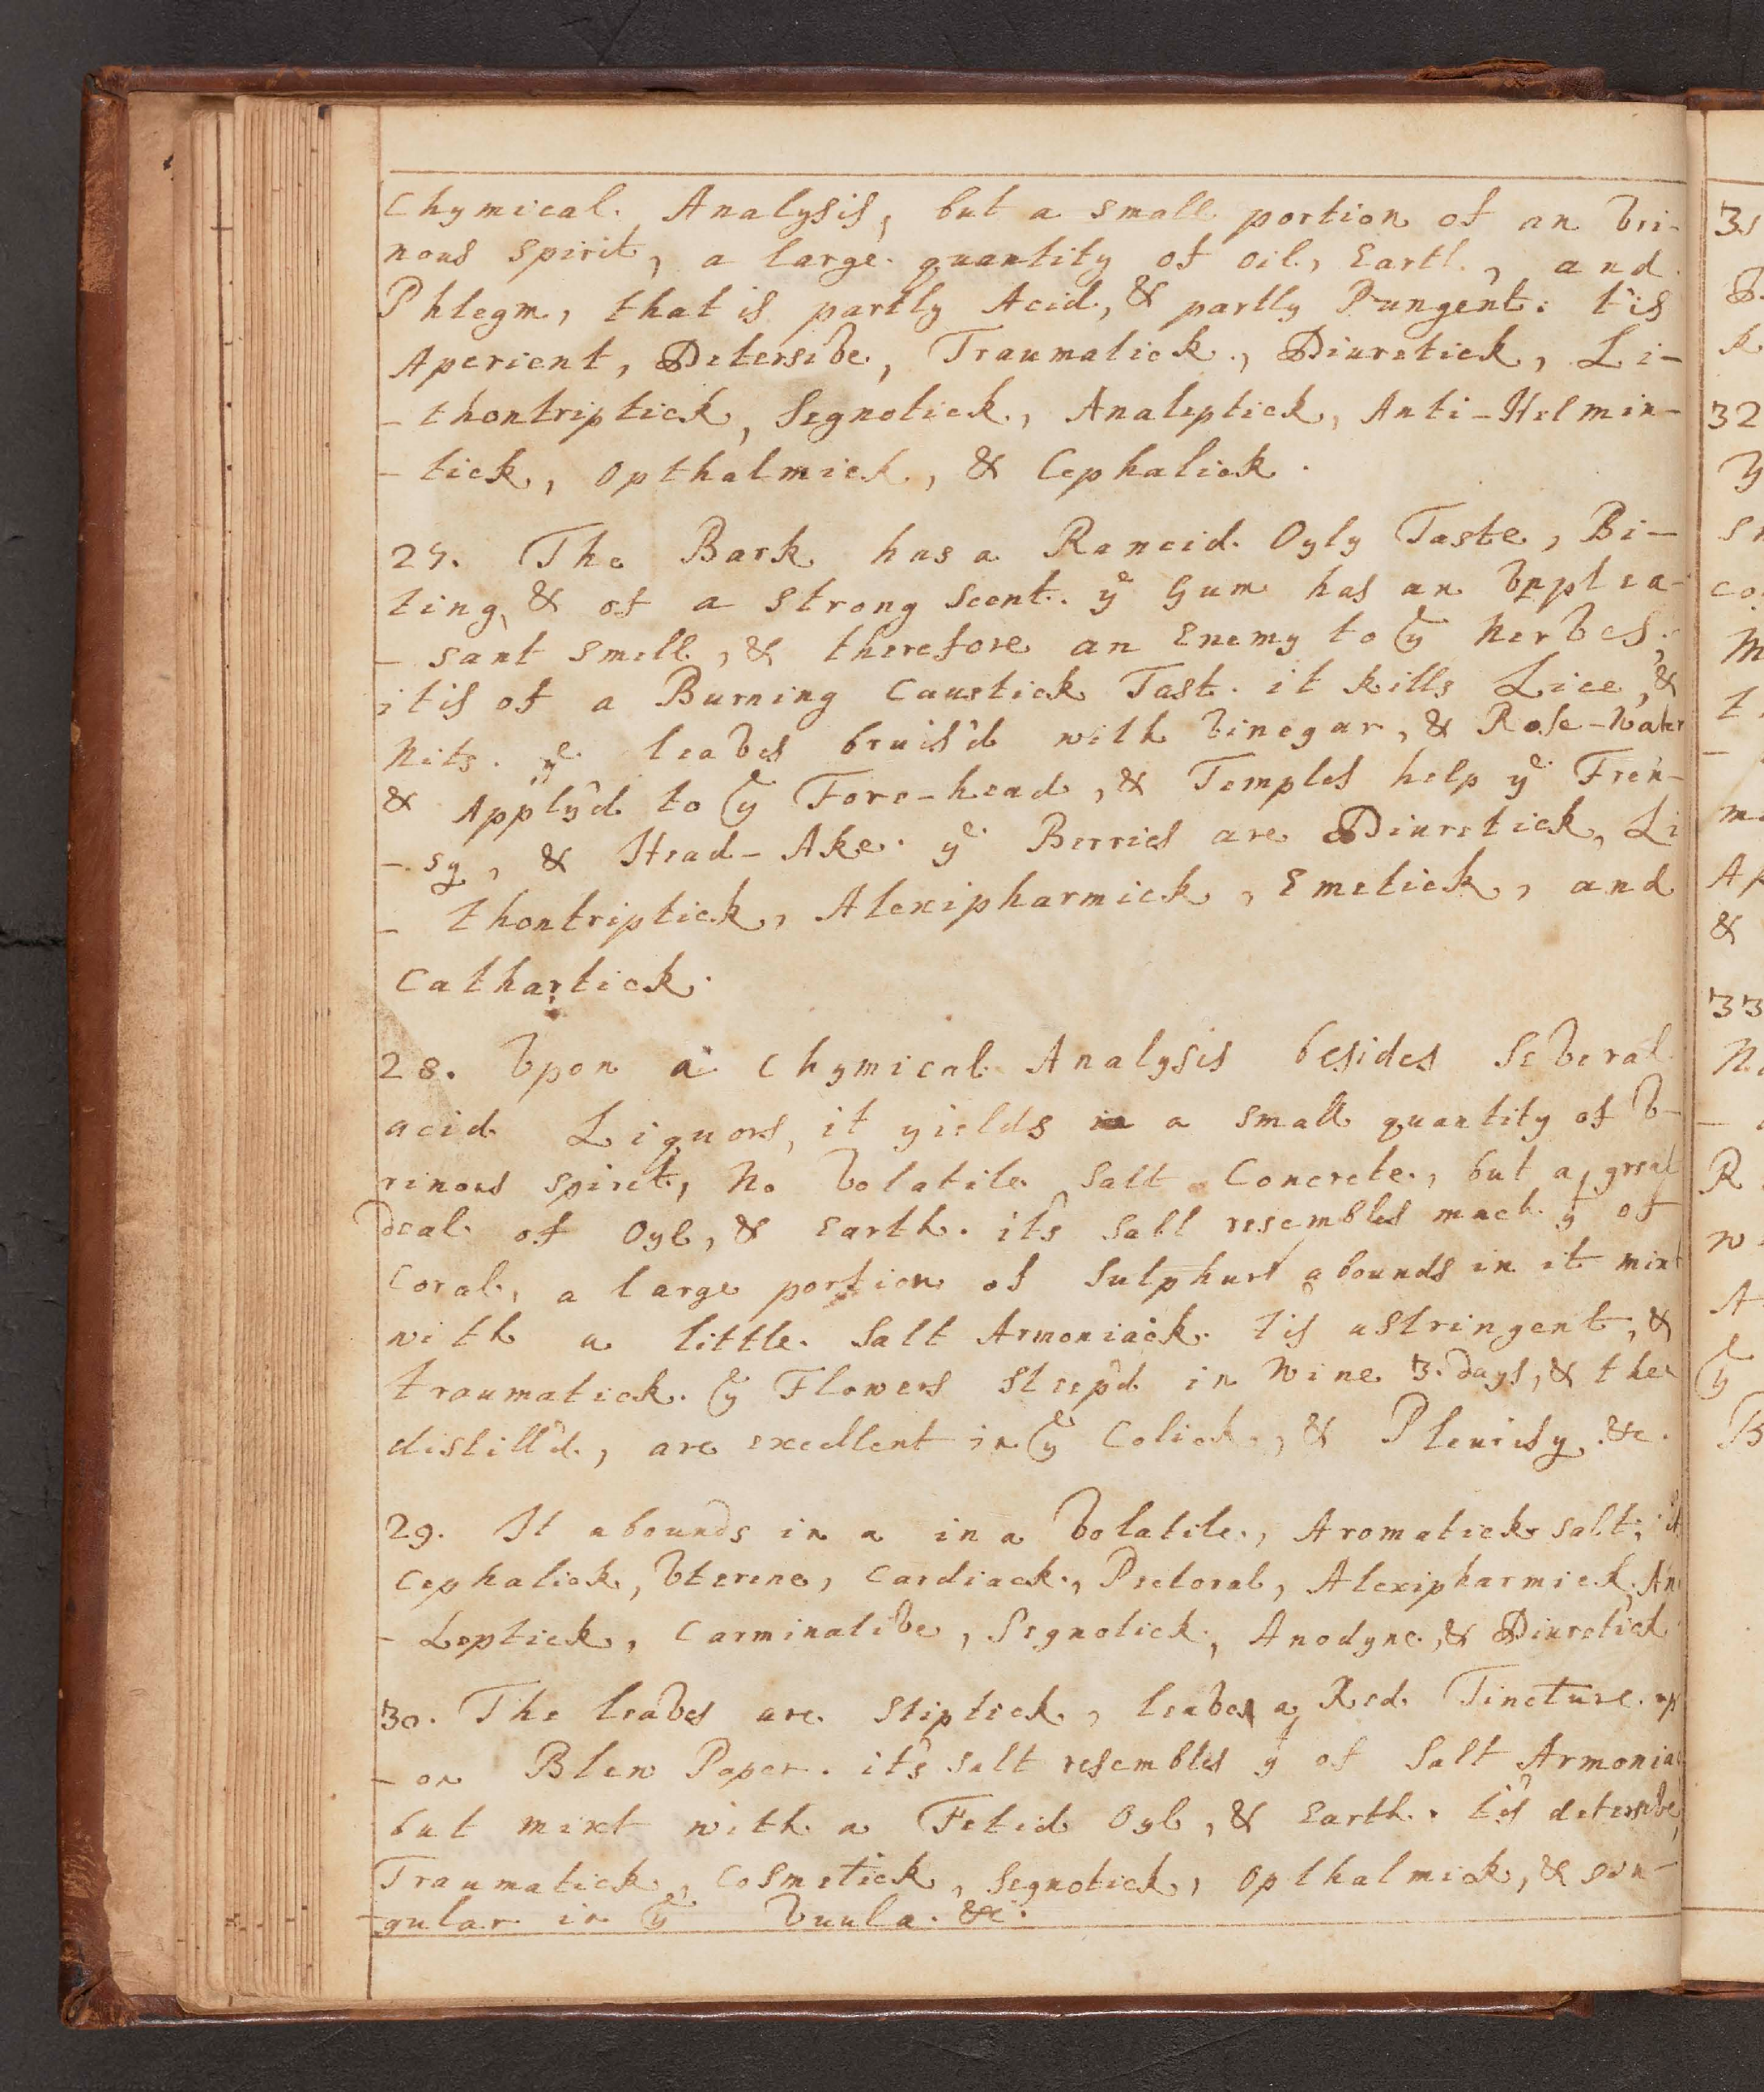 Chymical Analysis, but a small portion of an Vri-
nous spirit, a large quantity of oil, Earth, and
Phlegm, that is partly Acid, & partly Pungent: t'is
Aperient, Detersive, Traumatick, Diuretick, Li-
-thontriptick, Segnotick, Analeptick, Anti-Helmin-
-tick, Opthalmick, & Cephalick.
27. The Bark has a Rancid Oyly Taste, Bi-
ting, & of a strong scent. ye Gum has an Vnplea-
-sant smell, & therefore an Enemy to ye Nerves;
it is of a Burning Caustick Tast. it kills Lice, &
Nits. ye leaves bruis'd with Vinegar, & Rose-Water
& Apply'd to ye Fore-head, & Temples help ye Fren-
-sy, & Head-Ake. ye Berries are Diuretick, Li
-thontriptick, Alexipharmick, Emetick, and
Cathartick.
28. Vpon a Chymical Analysis besides Several
acid Liquors, it yields a small quantity of V-
rinous spirit, No Volatile Salt Concrete, but a great
deal of Oyl, & Earth. it's Salt resembles much yt of
Coral, a large portion of Sulphurs abounds in it mixt
with a little Salt Armoniack. tis astringent, &
traumatick. ye Flowers steep'd in Wine 3 days, & then
distill'd, are excellent in ye Colick, & Pleurisy &c.
29. It abounds in a in a Volatile, Aromatick salt;
Cephalick, Vterine, Cardiack, Pectoral, Alexipharmick, Ana
-Leptick, Carminative, Segnotick, Anodyne, & Diuretick
30. The leaves are stiptick, leaves a Red Tincture up
-on Blew Paper. it's salt resembles yt of Salt Armoniac
but mixt with a Fetid Oyl, & Earth. t'is detersive,
Traumatick, Cosmetick, Segnotick, Opthalmick, & sin-
-gular in ye Vuula. &c.
3
32
33